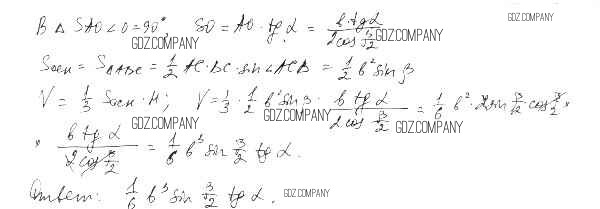 В △ SAO ∠O = 90°, SO = AO · tg α = b tg α / 2cos β/2
GDZ.COMPANY
GDZ.COMPANY
GDZ.COMPANY
Sосн = S△ABC = 1/2 AC · BC · sin ∠ACB = 1/2 b² sin β
GDZ.COMPANY
V = 1/3 Sосн · H; V = 1/3 · 1/2 b² sin β · b tg α / 2cos β/2 = 1/6 b² · 2 sin β/2 · cos β/2 ×
GDZ.COMPANY
GDZ.COMPANY
GDZ.COMPANY
× b tg α / 2cos β/2 = 1/6 b³ sin β/2 tg α.
Ответ: 1/6 b³ sin β/2 tg α.
GDZ.COMPANY